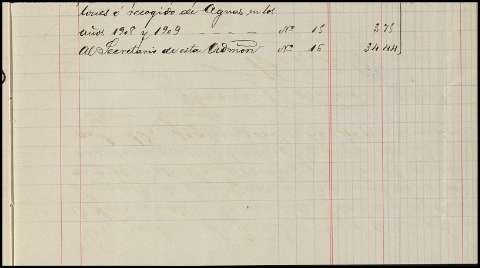 lones é recogido de Aguas en los
años 1908 y 1909 - - - - Nº 15 2 75
Al Secretario de esta Admon Nº 16 34 44